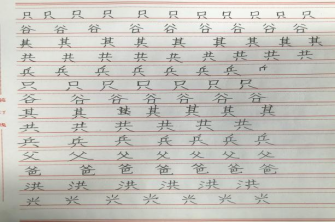 只 只 只 只 只 只 只 只 只 只
谷 谷 谷 谷 谷 谷 谷 谷 谷
其 其 其 其 其 其 其 其
共 共 共 共 共 共 共 共
兵 兵 兵 兵 兵 兵
只 只 只 只 只 只 只
谷 谷 谷 谷 谷 谷 谷
其 其 其 其 其 其 其
共 共 共 共 共 共
兵 兵 兵 兵 兵 兵 兵
父 父 父 父 父 父 父
爸 爸 爸 爸 爸 爸 爸
洪 洪 洪 洪 洪 洪
兴 兴 兴 兴 兴 兴 兴